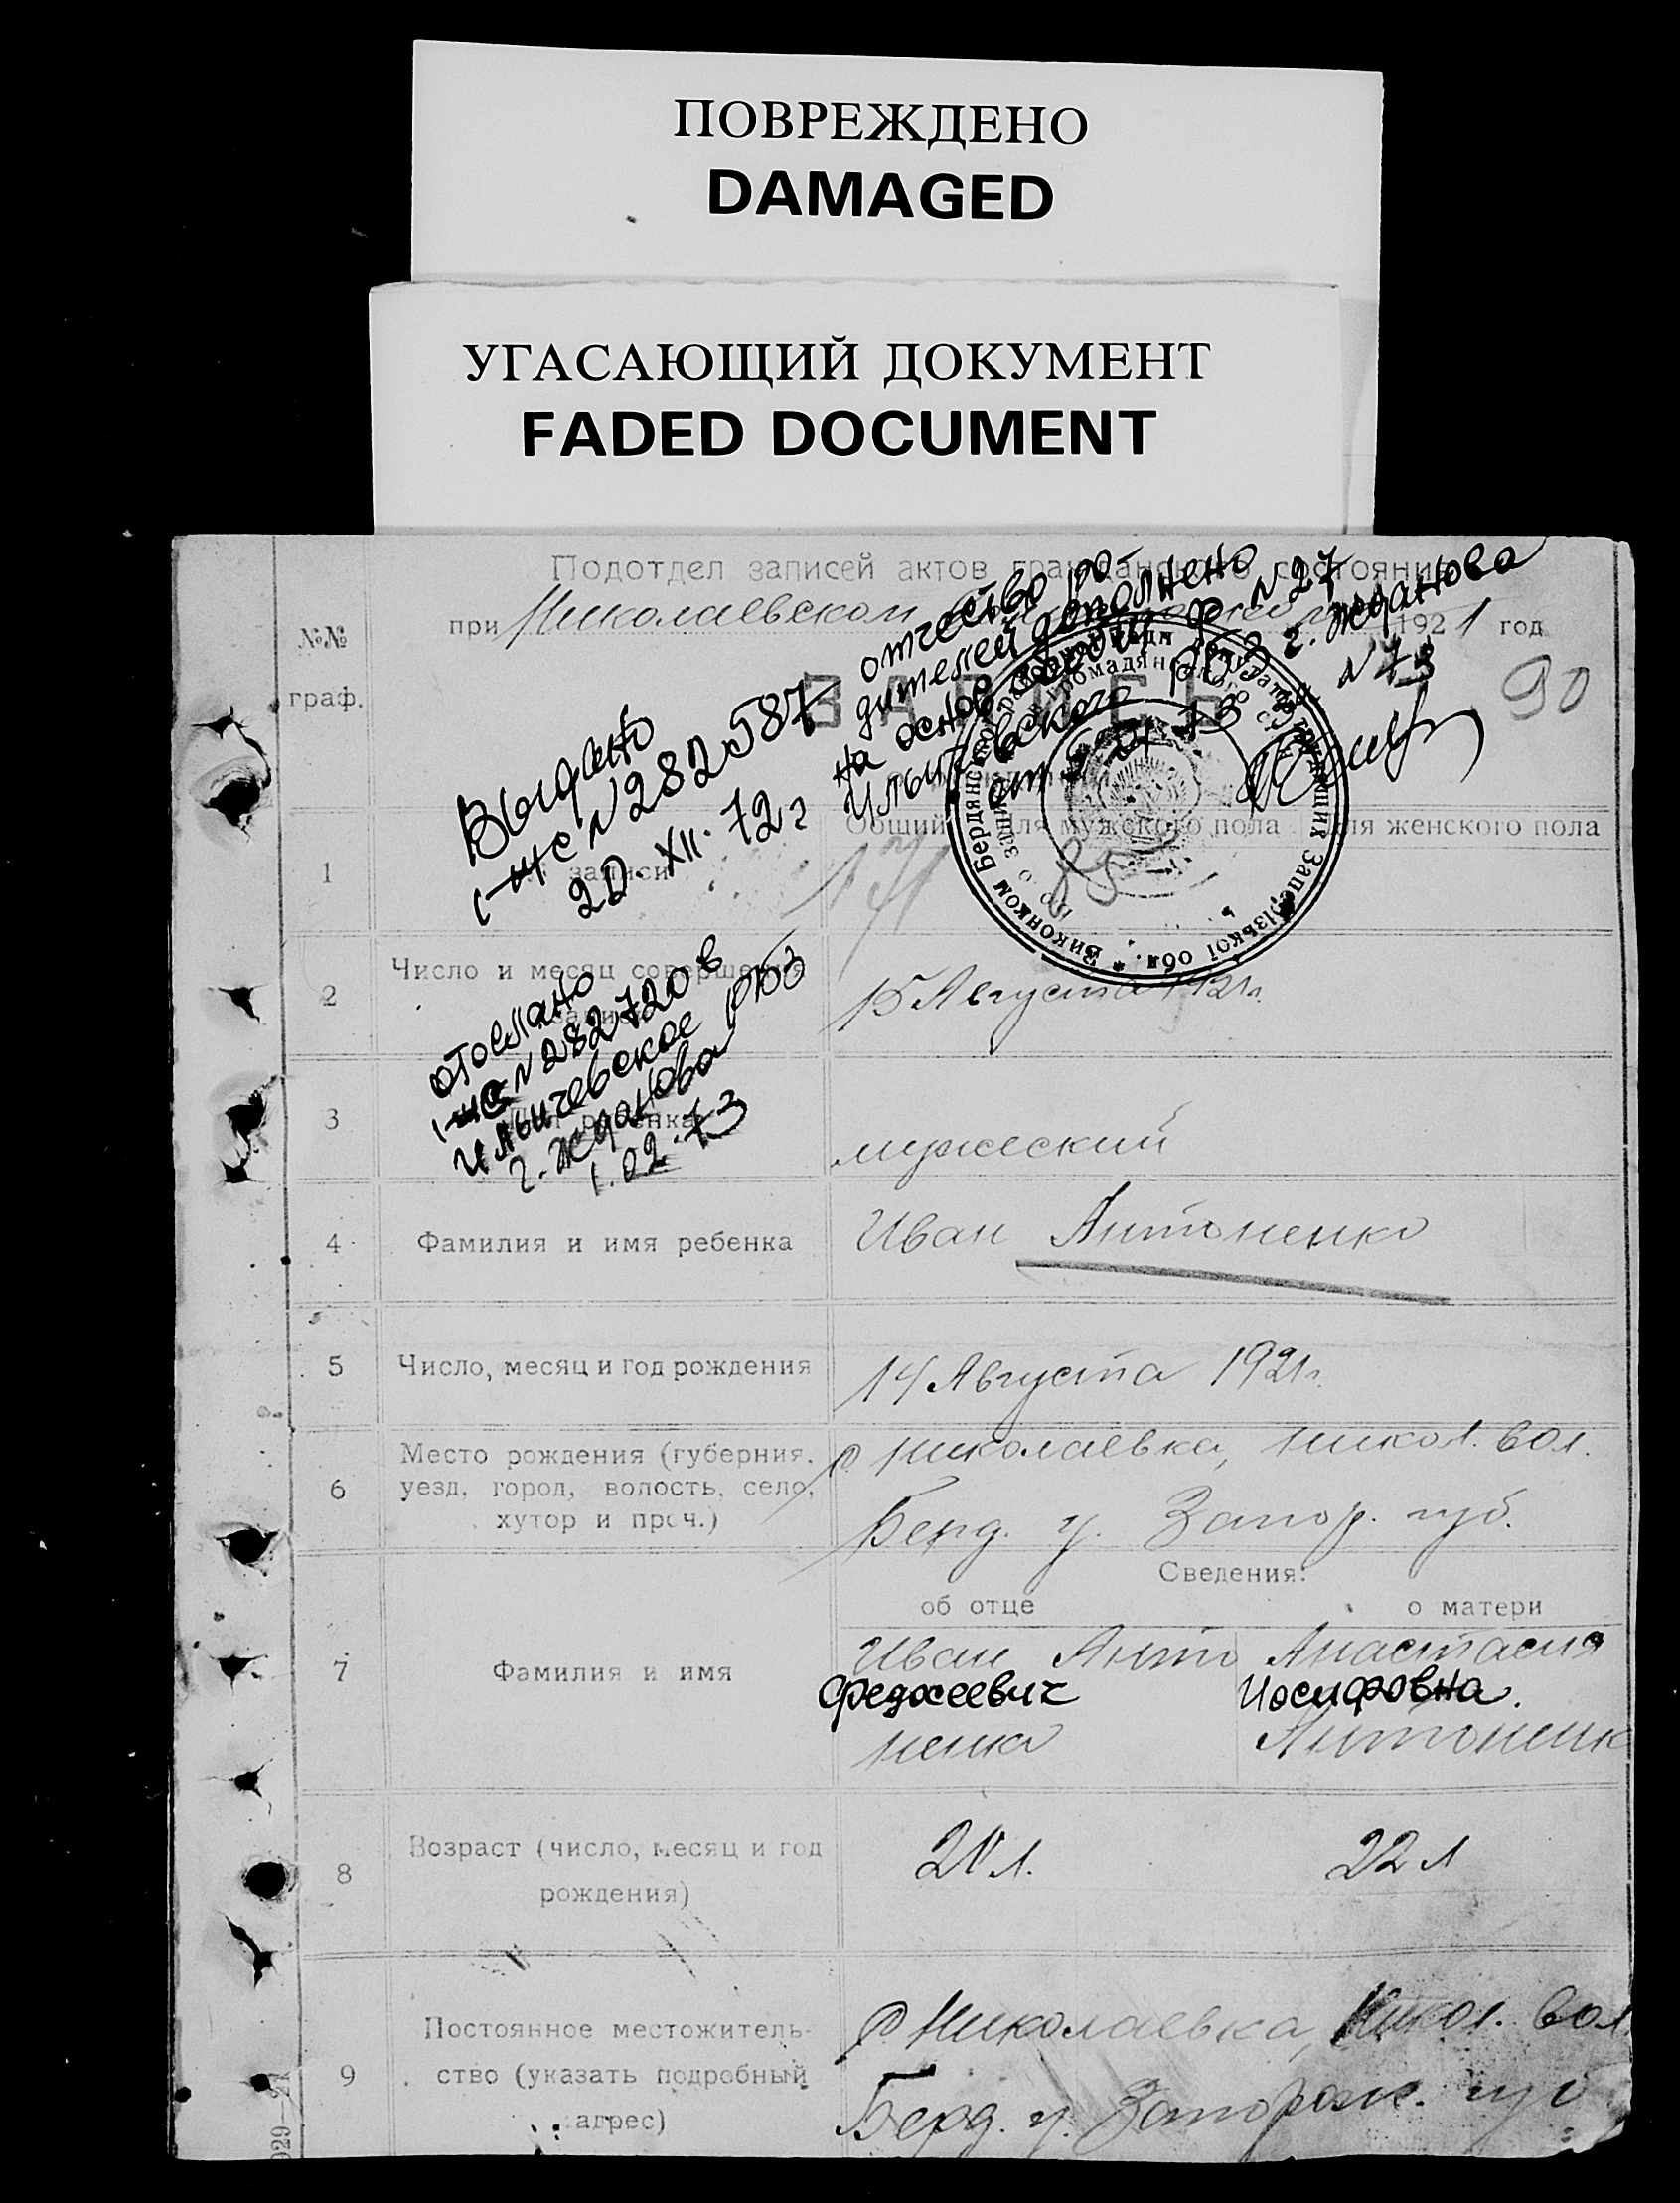 ПОВРЕЖДЕНО
DAMAGED
УГАСАЮЩИЙ ДОКУМЕНТ
FADED DOCUMENT
Подотдел записей актов гражданского состояния
при Николаевском 1921 год
№№
граф.
ЗАПИСЬ
90
Выдано
I-ЖС N 282587
20. XII. 72 г
отчество ро-
дителей дополнено
на основ
Ильичевского г. Жданова
N 27
N 73
Общий Для мужского пола Для женского пола
1
записи
171
85
2
Число и месяц совершения
записи
15 Августа 1921 г.
отослано
I-ЖС N 282720 в
Ильичевское РБЗ
г. Жданова
1.02.73
3
мужеский
4
Фамилия и имя ребенка
Иван Антоненко
5
Число, месяц и год рождения
14 Августа 1921 г.
6
Место рождения (губерния,
уезд, город, волость, село,
хутор и проч.)
с Николаевка, Никол. вол.
Берд. у. Запор. губ.
Сведения:
об отце
о матери
7
Фамилия и имя
Иван Анто
Федосеевич
ненко
Анастасия
Иосифовна.
Антоненк
8
Возраст (число, месяц и год
рождения)
21 л.
22 л
9
Постоянное местожитель-
ство (указать подробный
адрес)
с Николаевка, Никол. вол
Берд. у. Запорож. губ